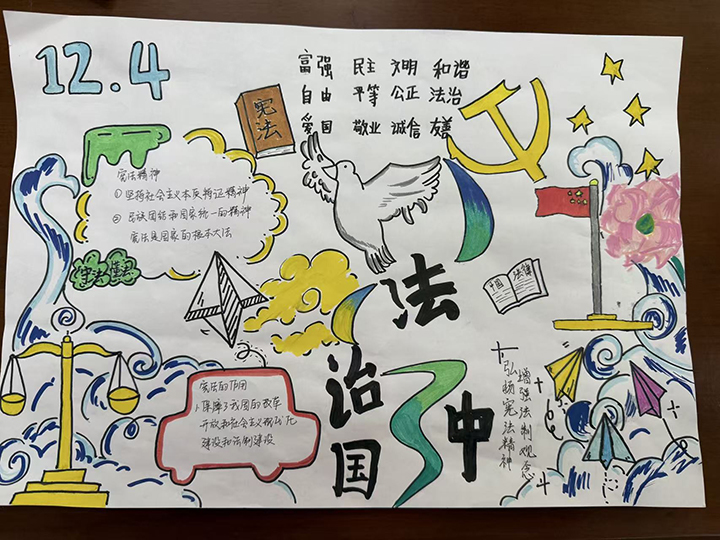 12.4
富强 民主 文明 和谐
自由 平等 公正 法治
爱国 敬业 诚信 友善
宪法
宪法精神
①坚持社会主义本质特征精神
②民族团结和国家统一的精神
宪法是国家的根本大法
守法 懂法
中国 法律
法
治
国
中
宪法的作用
1、保障了我国的改革
开放和社会主义现代化
建设和法制建设
增强法制观念
弘扬宪法精神